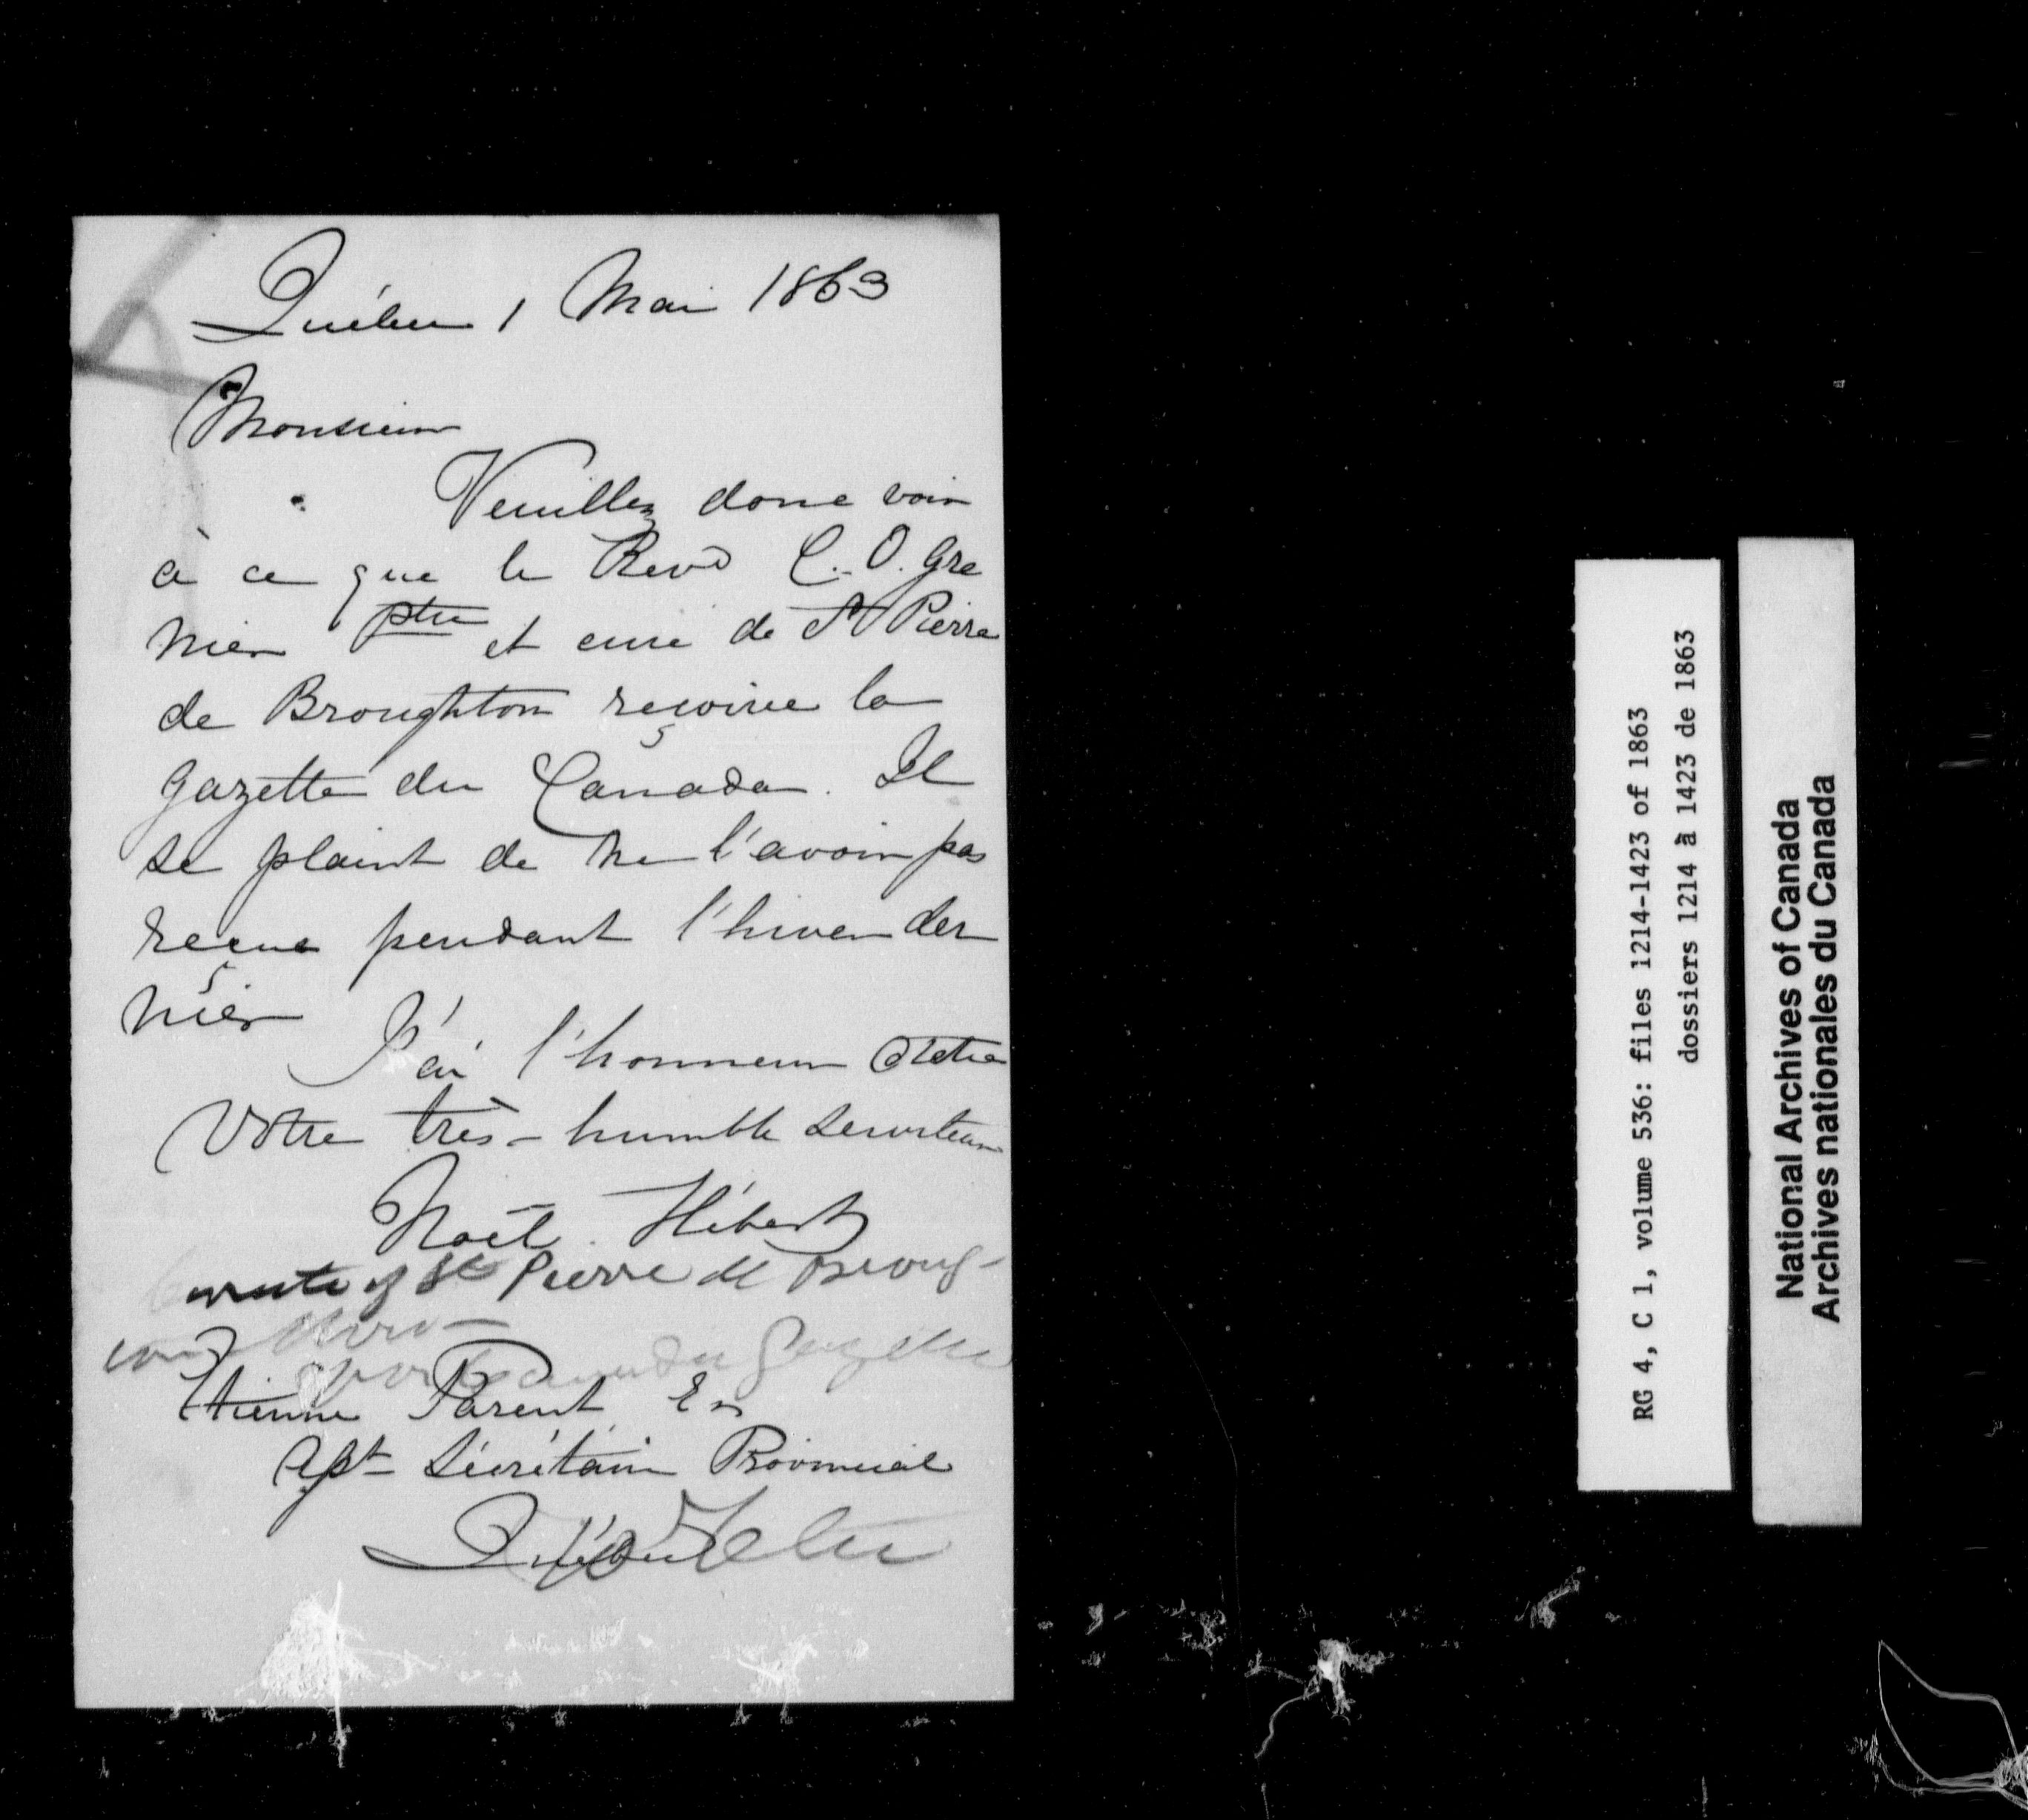 Québec 1 Mai 1863
Monsieur
Veuillez donc voir
à ce que le Revd C. O. Gre
nier ptre et curé de St Pierre
de Broughton reçoive la
Gazette du Canada. Il
se plaint de ne l'avoir pas
reçue pendant l'hiver der
nier
J'ai l'honneur d'etre
Votre très-humble serviteur
Noël Hébert
of St Pierre de Broug-
Gazette
Etienne Parent Er
Asst Sécrétaire Provincial
Québec
RG 4, C 1, volume 536: files 1214-1423 of 1863
dossiers 1214 à 1423 de 1863
National Archives of Canada
Archives nationales du Canada